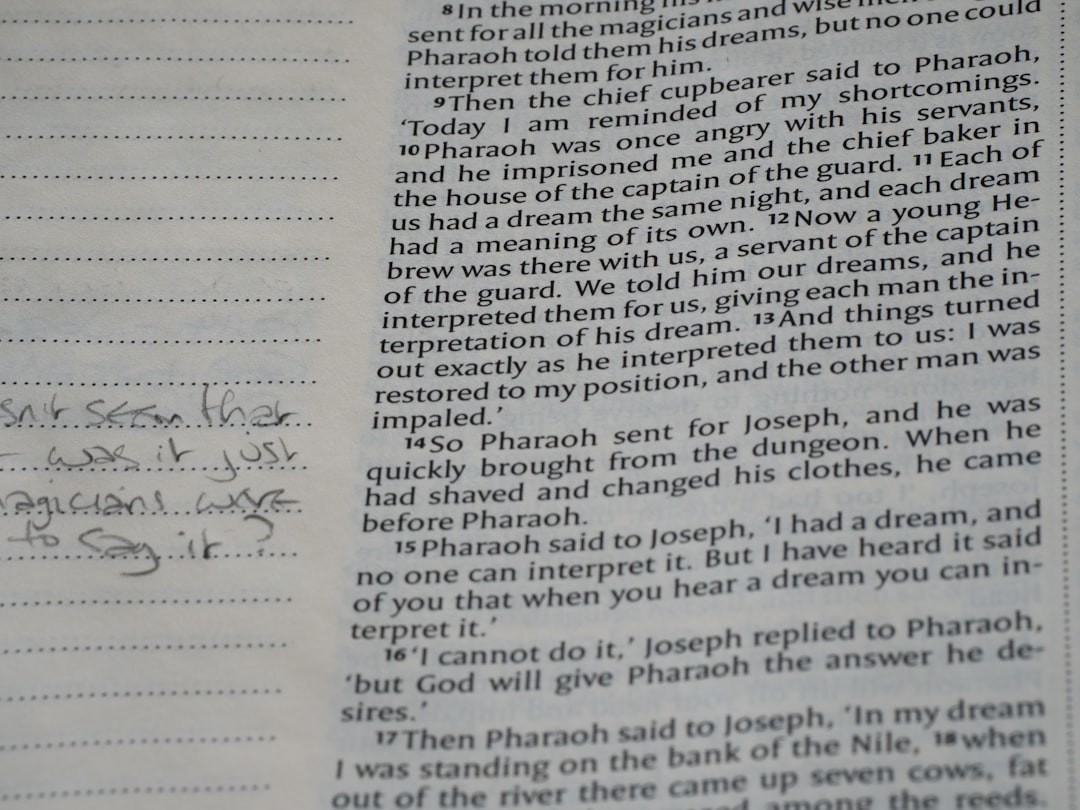 8 In the morning his
sent for all the magicians and wise men
Pharaoh told them his dreams, but no one could
interpret them for him.
9 Then the chief cupbearer said to Pharaoh,
‘Today I am reminded of my shortcomings.
10 Pharaoh was once angry with his servants,
and he imprisoned me and the chief baker in
the house of the captain of the guard. 11 Each of
us had a dream the same night, and each dream
had a meaning of its own. 12 Now a young He-
brew was there with us, a servant of the captain
of the guard. We told him our dreams, and he
interpreted them for us, giving each man the in-
terpretation of his dream. 13 And things turned
out exactly as he interpreted them to us: I was
restored to my position, and the other man was
impaled.’
14 So Pharaoh sent for Joseph, and he was
quickly brought from the dungeon. When he
had shaved and changed his clothes, he came
before Pharaoh.
15 Pharaoh said to Joseph, ‘I had a dream, and
no one can interpret it. But I have heard it said
of you that when you hear a dream you can in-
terpret it.’
16 ‘I cannot do it,’ Joseph replied to Pharaoh,
‘but God will give Pharaoh the answer he de-
sires.’
17 Then Pharaoh said to Joseph, ‘In my dream
I was standing on the bank of the Nile, 18 when
out of the river there came up seven cows, fat
among the reeds.
snt seem that
was it just
agicians were
to say it?